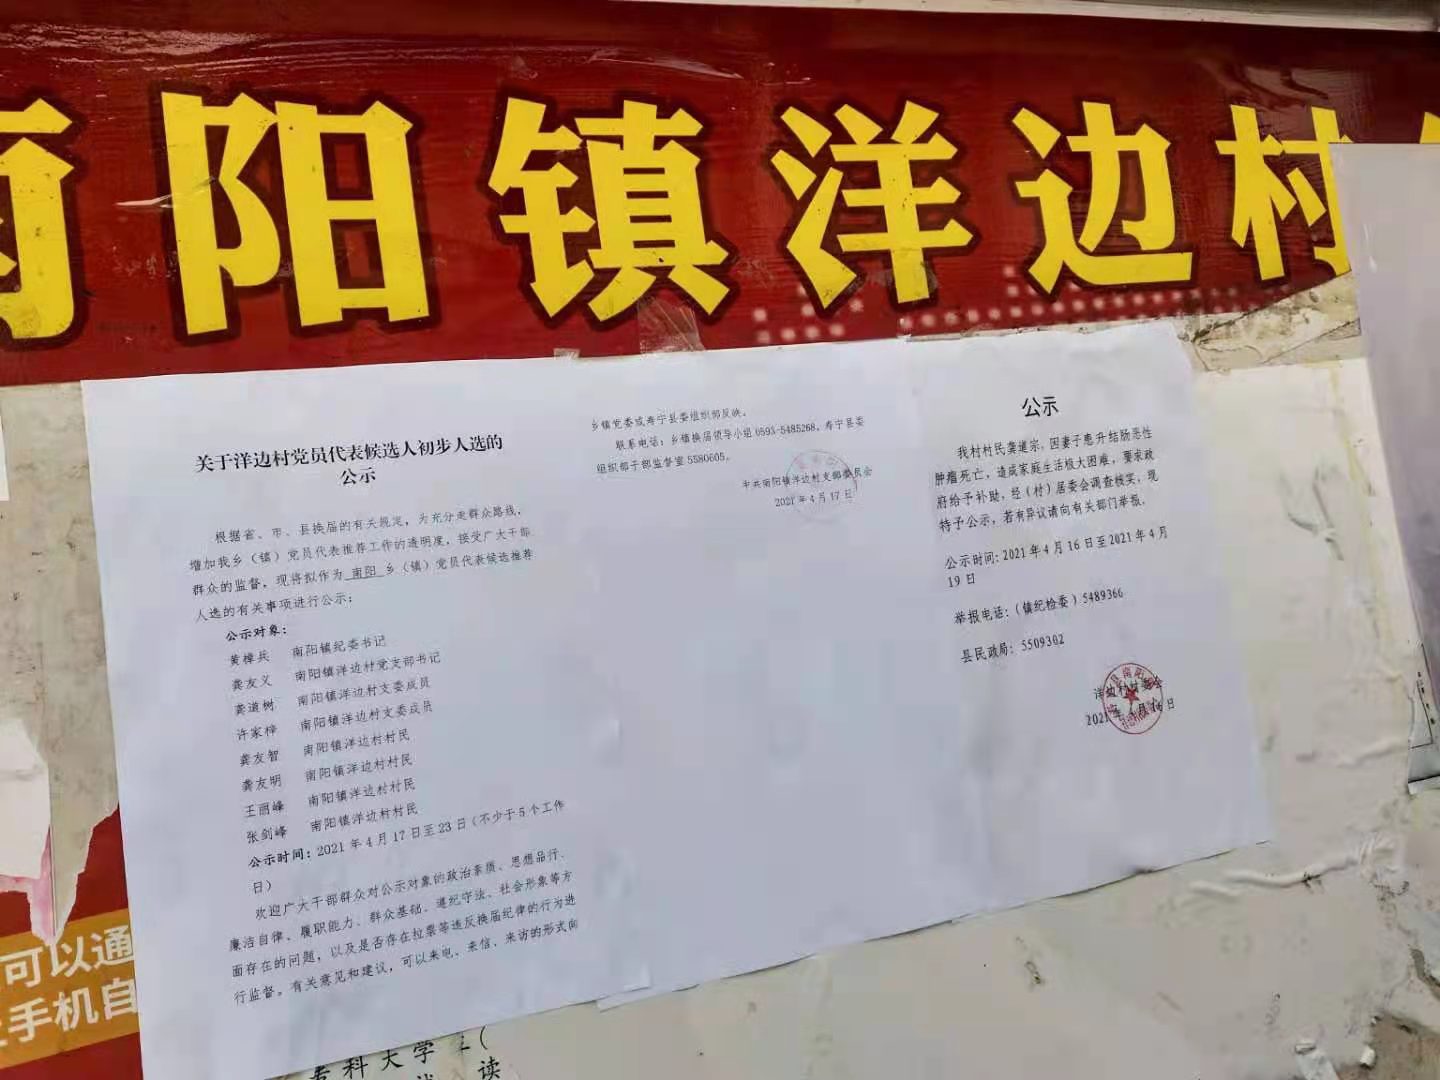 南阳镇洋边村
关于洋边村党员代表候选人初步人选的
公示
根据省、市、县换届的有关规定，为充分走群众路线，
增加我乡（镇）党员代表推荐工作的透明度，接受广大干部
群众的监督，现将拟作为 南阳 乡（镇）党员代表候选推荐
人选的有关事项进行公示：
公示对象：
黄樟兵 南阳镇纪委书记
龚友义 南阳镇洋边村党支部书记
龚道树 南阳镇洋边村支委成员
许家梓 南阳镇洋边村支委成员
龚友智 南阳镇洋边村村民
龚友明 南阳镇洋边村村民
王丽峰 南阳镇洋边村村民
张剑峰 南阳镇洋边村村民
公示时间：2021年4月17日至23日（不少于5个工作
日）
欢迎广大干部群众对公示对象的政治素质、思想品行、
廉洁自律、履职能力、群众基础、遵纪守法、社会形象等方
面存在的问题，以及是否存在拉票等违反换届纪律的行为进
行监督。有关意见和建议，可以来电、来信、来访的形式向
乡镇党委或寿宁县委组织部反映。
联系电话：乡镇换届领导小组0593-5485268，寿宁县委
组织部干部监督室5580605。
中共南阳镇洋边村支部委员会
2021年4月17日
公示
我村村民龚道宗，因妻子患升结肠恶性
肿瘤死亡，造成家庭生活极大困难，要求政
府给予补助，经（村）居委会调查核实，现
特予公示，若有异议请向有关部门举报。
公示时间：2021年4月16日至2021年4月
19日
举报电话：（镇纪检委）5489366
县民政局：5509302
洋边村村委会
2021年4月16日
可以通
手机自
专科大学
读